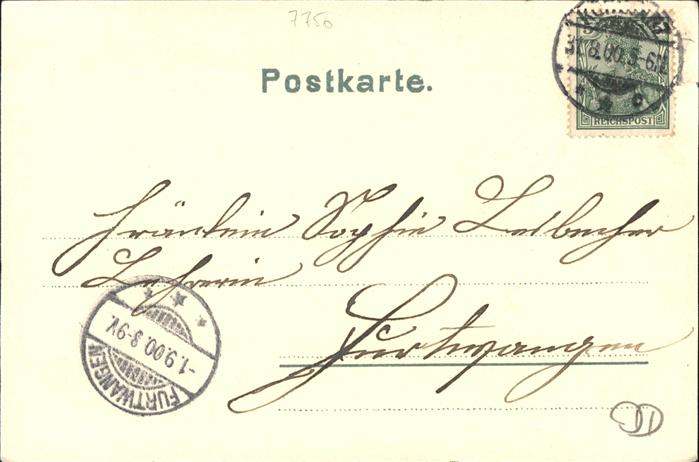 7750
31.8.00.5-6N.
REICHSPOST
Postkarte.
Fräulein Sophie Leibacher
Lehrerin
Furtwangen
-1.9.00.8-9V.
FURTWANGEN